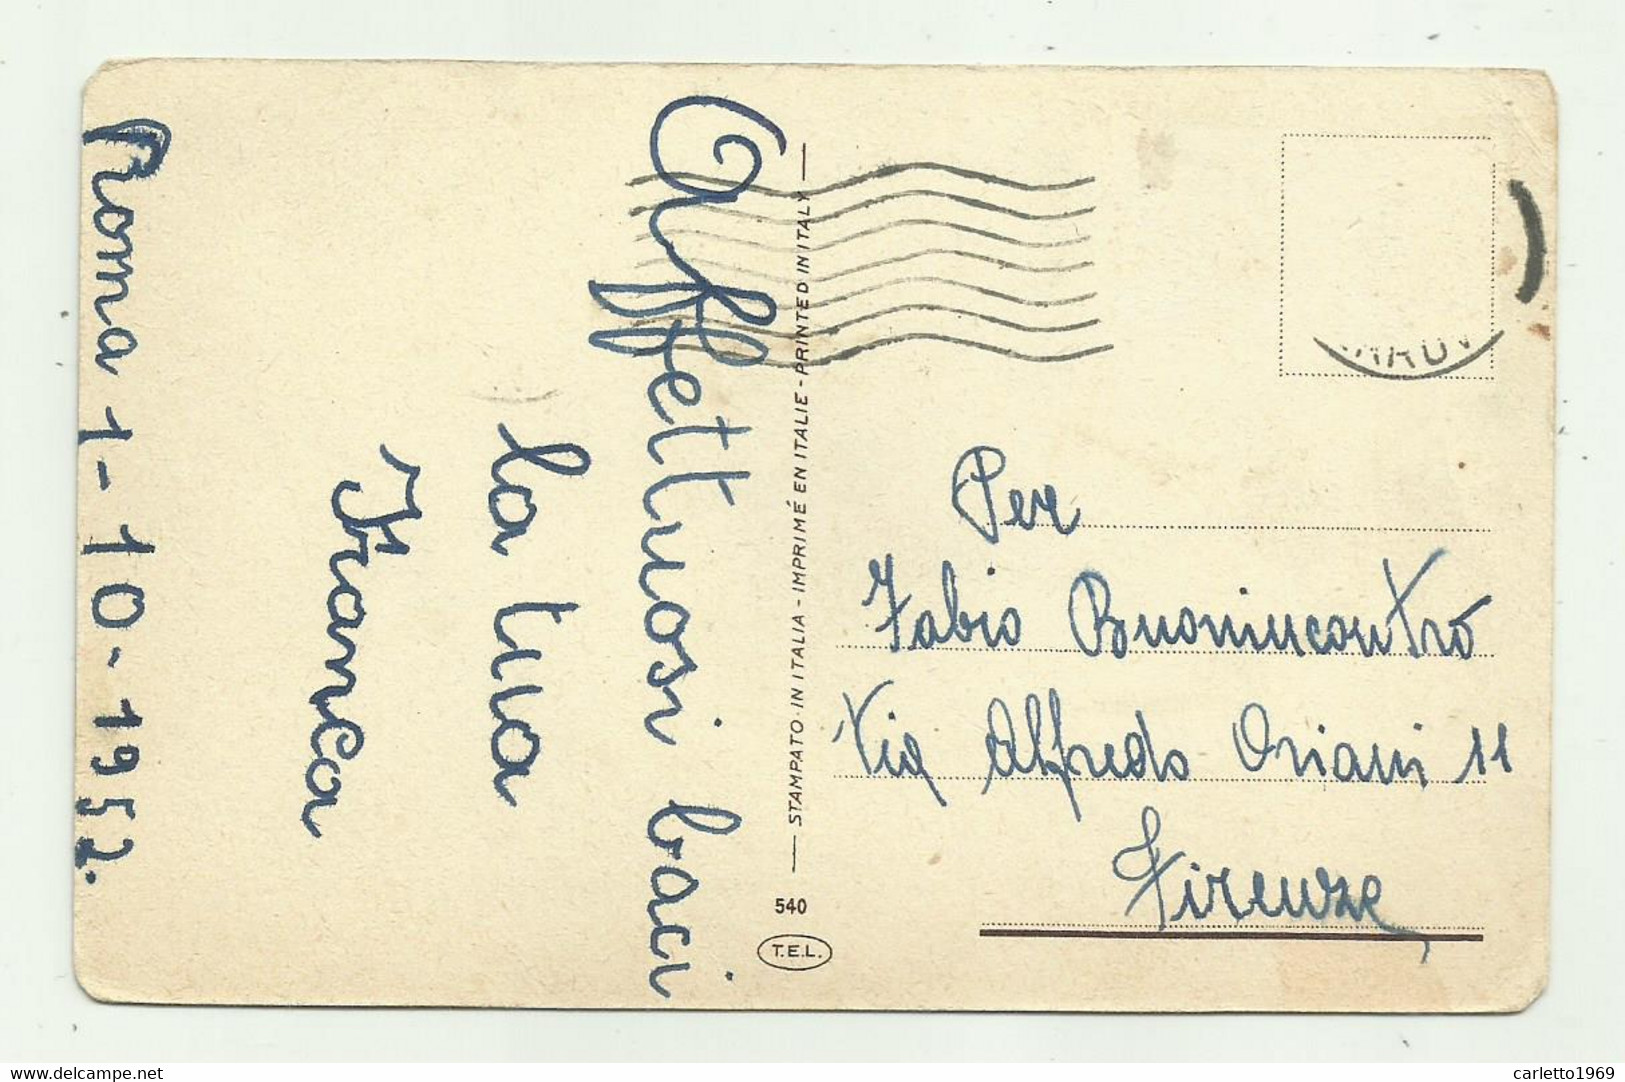 Roma 1-10-1952.
Affettuosi baci
la tua
Franca
STAMPATO IN ITALIA - IMPRIMÉ EN ITALIE - PRINTED IN ITALY
540
T.E.L.
Per
Fabio Buonincontro
Via Alfredo Oriani 11
Firenze
www.delcampe.net
carletto1969